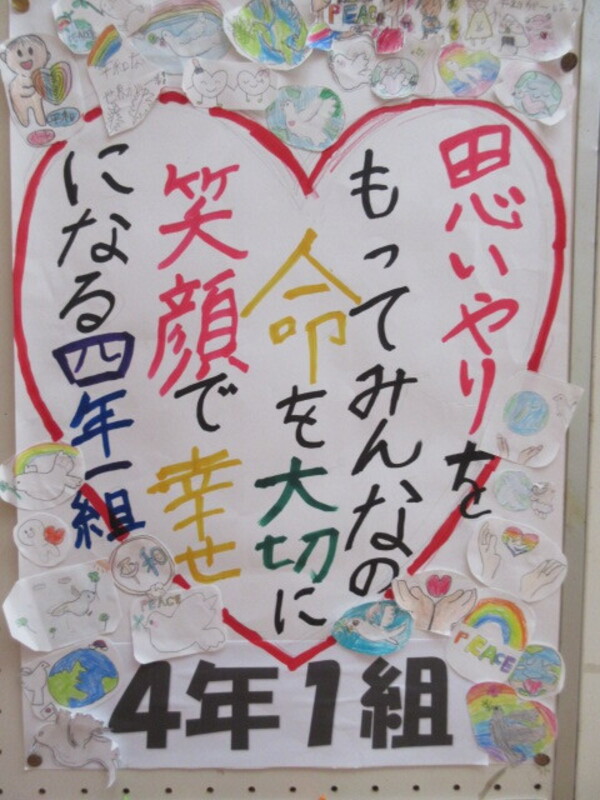 思いやりを
もってみんなの
命を大切に
笑顔で幸せ
になる四年一組
4年1組
PEACE
平和
PEACE
PEACE